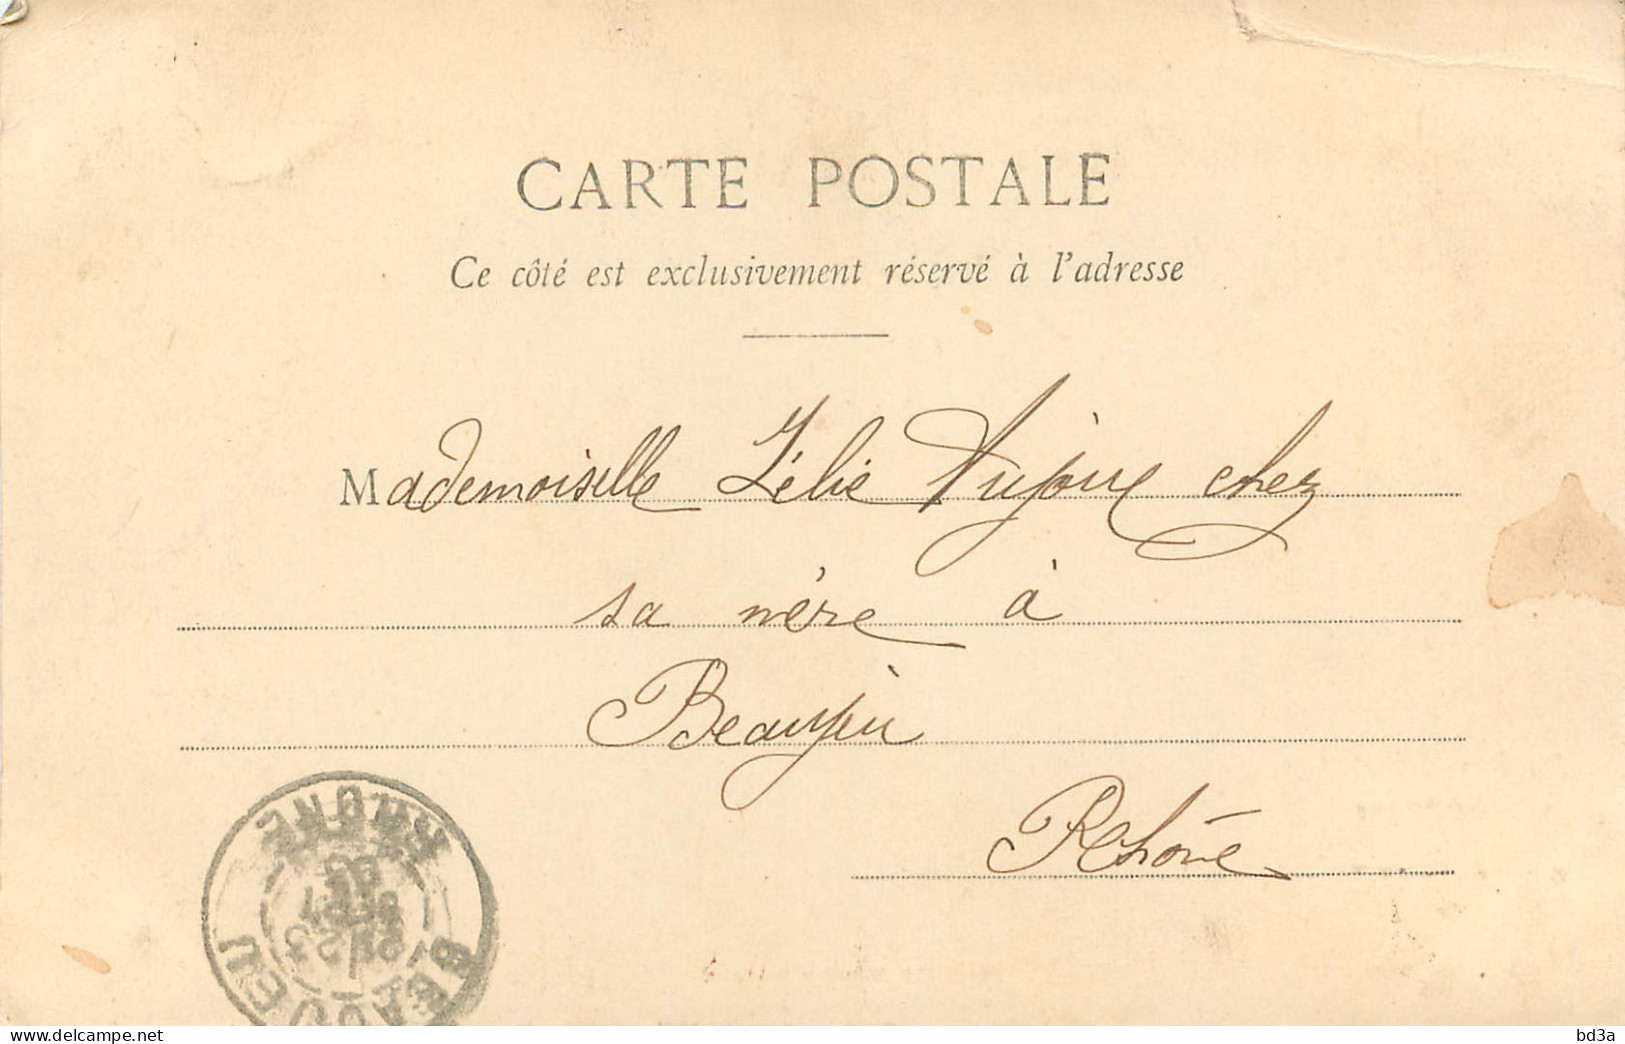 CARTE POSTALE
Ce côté est exclusivement réservé à l'adresse
Mademoiselle Zélie Dujour chez
sa mère à
Beaujeu
Rhône
RHONE
BEAUJEU
bd3a